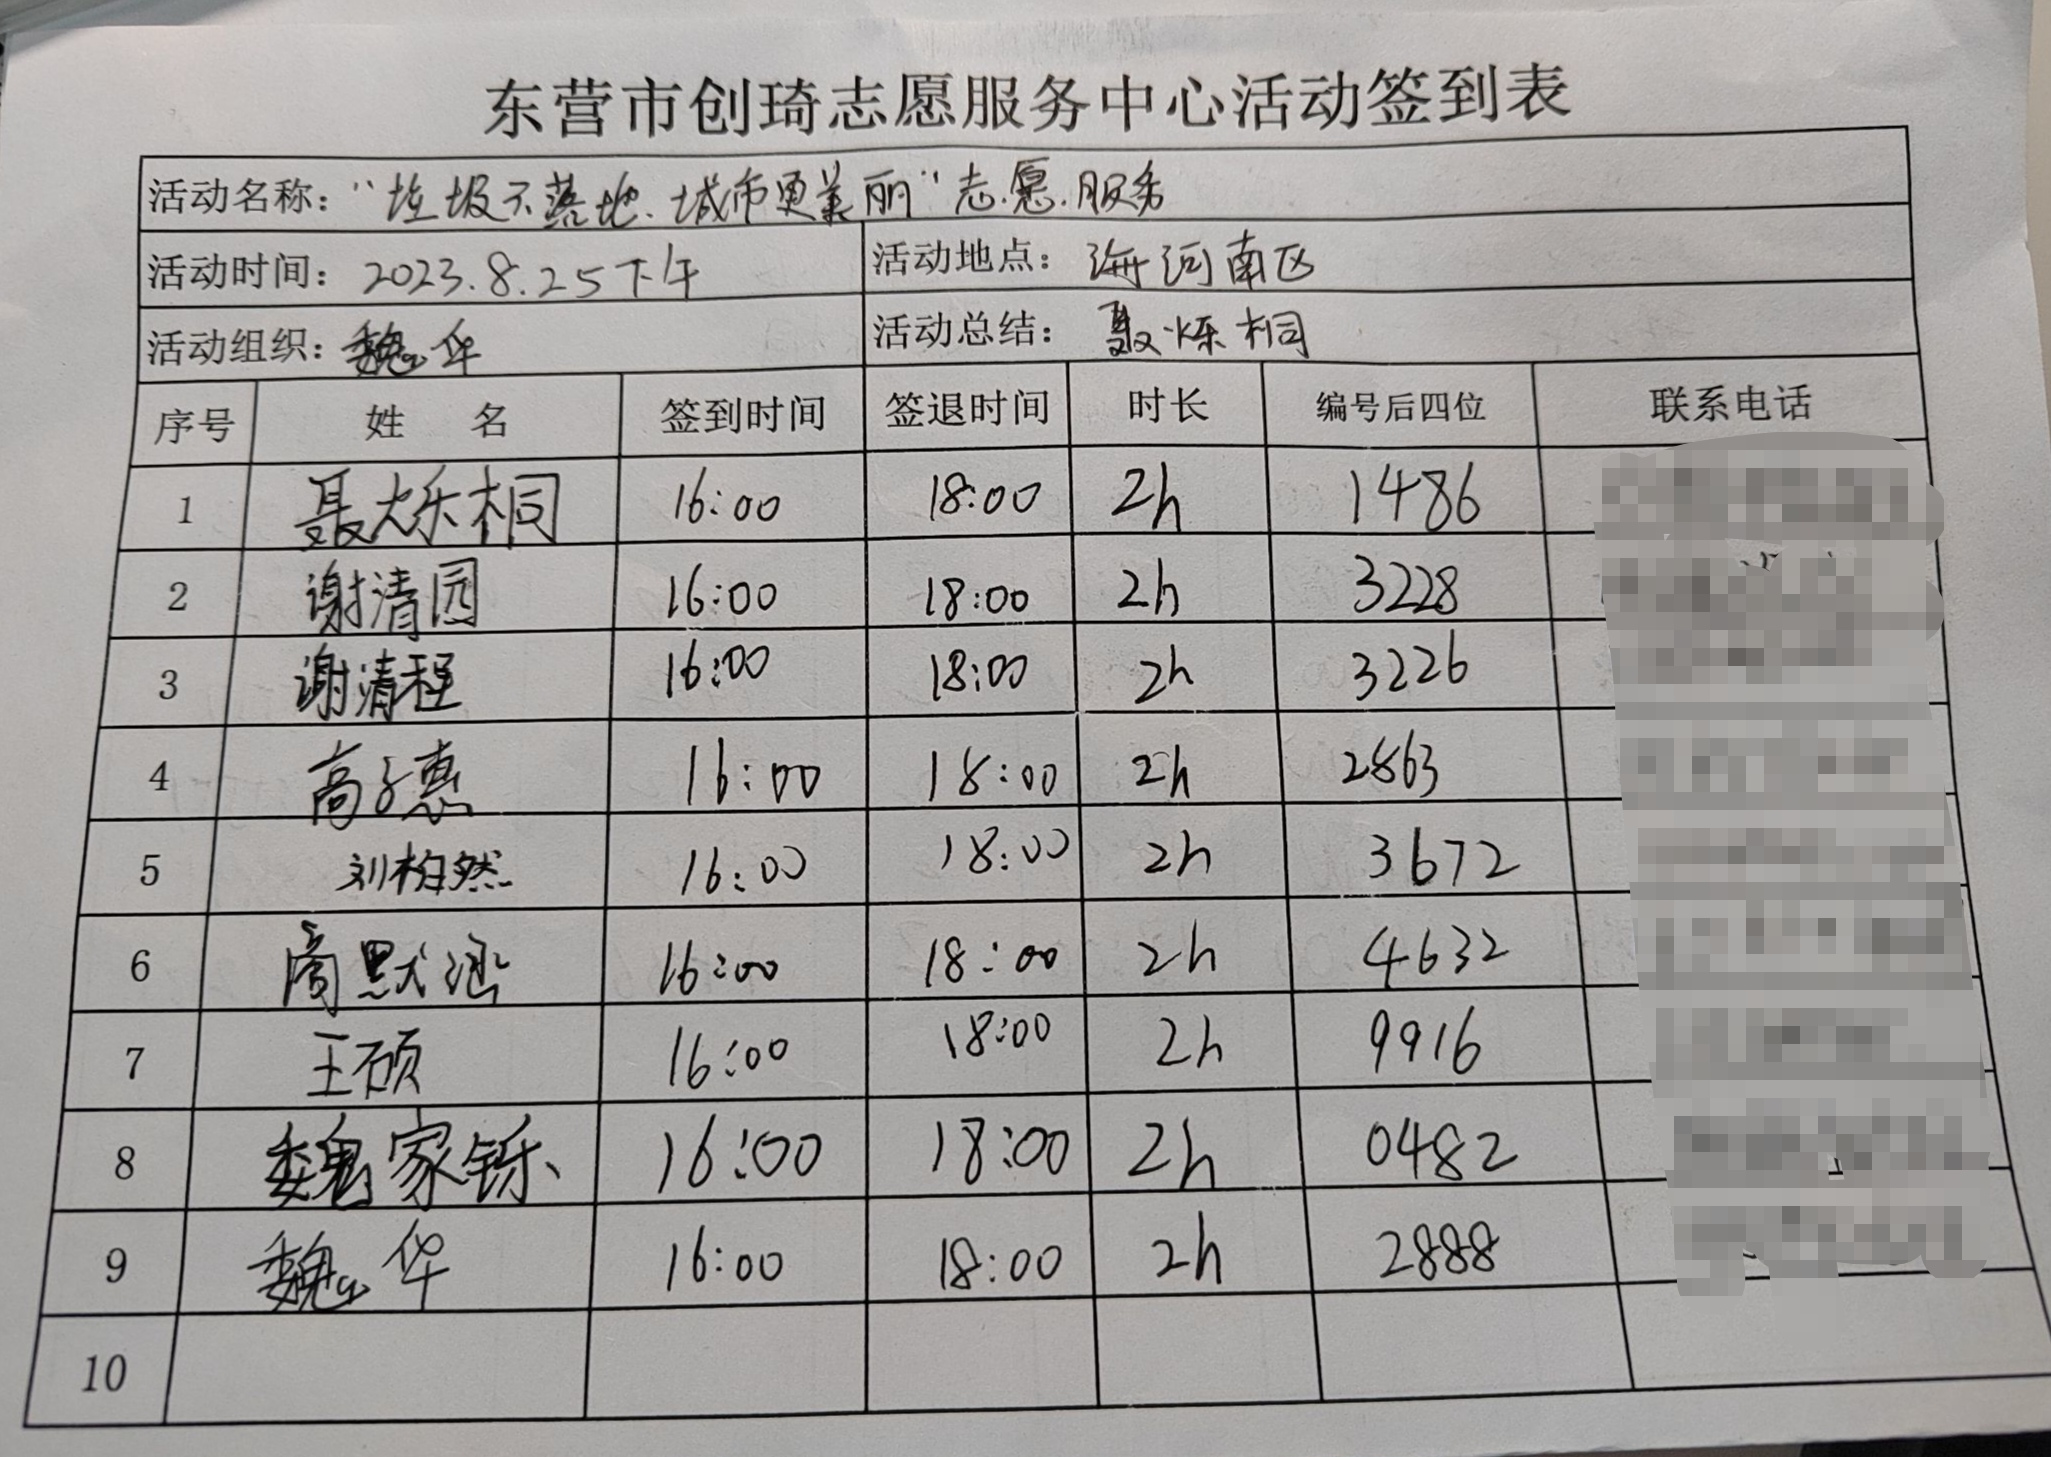 东营市创琦志愿服务中心活动签到表
活动名称：“垃圾不落地.城市更美丽”志愿服务
活动时间：2023.8.25下午 活动地点：海河南区
活动组织：魏华 活动总结：聂烁桐
序号 姓 名 签到时间 签退时间 时长 编号后四位 联系电话
1 聂烁桐 16:00 18:00 2h 1486
2 谢清园 16:00 18:00 2h 3228
3 谢清程 16:00 18:00 2h 3226
4 高子惠 16:00 18:00 2h 2863
5 刘柏然 16:00 18:00 2h 3672
6 商默涵 16:00 18:00 2h 4632
7 王硕 16:00 18:00 2h 9916
8 魏家铄 16:00 18:00 2h 0482
9 魏华 16:00 18:00 2h 2888
10